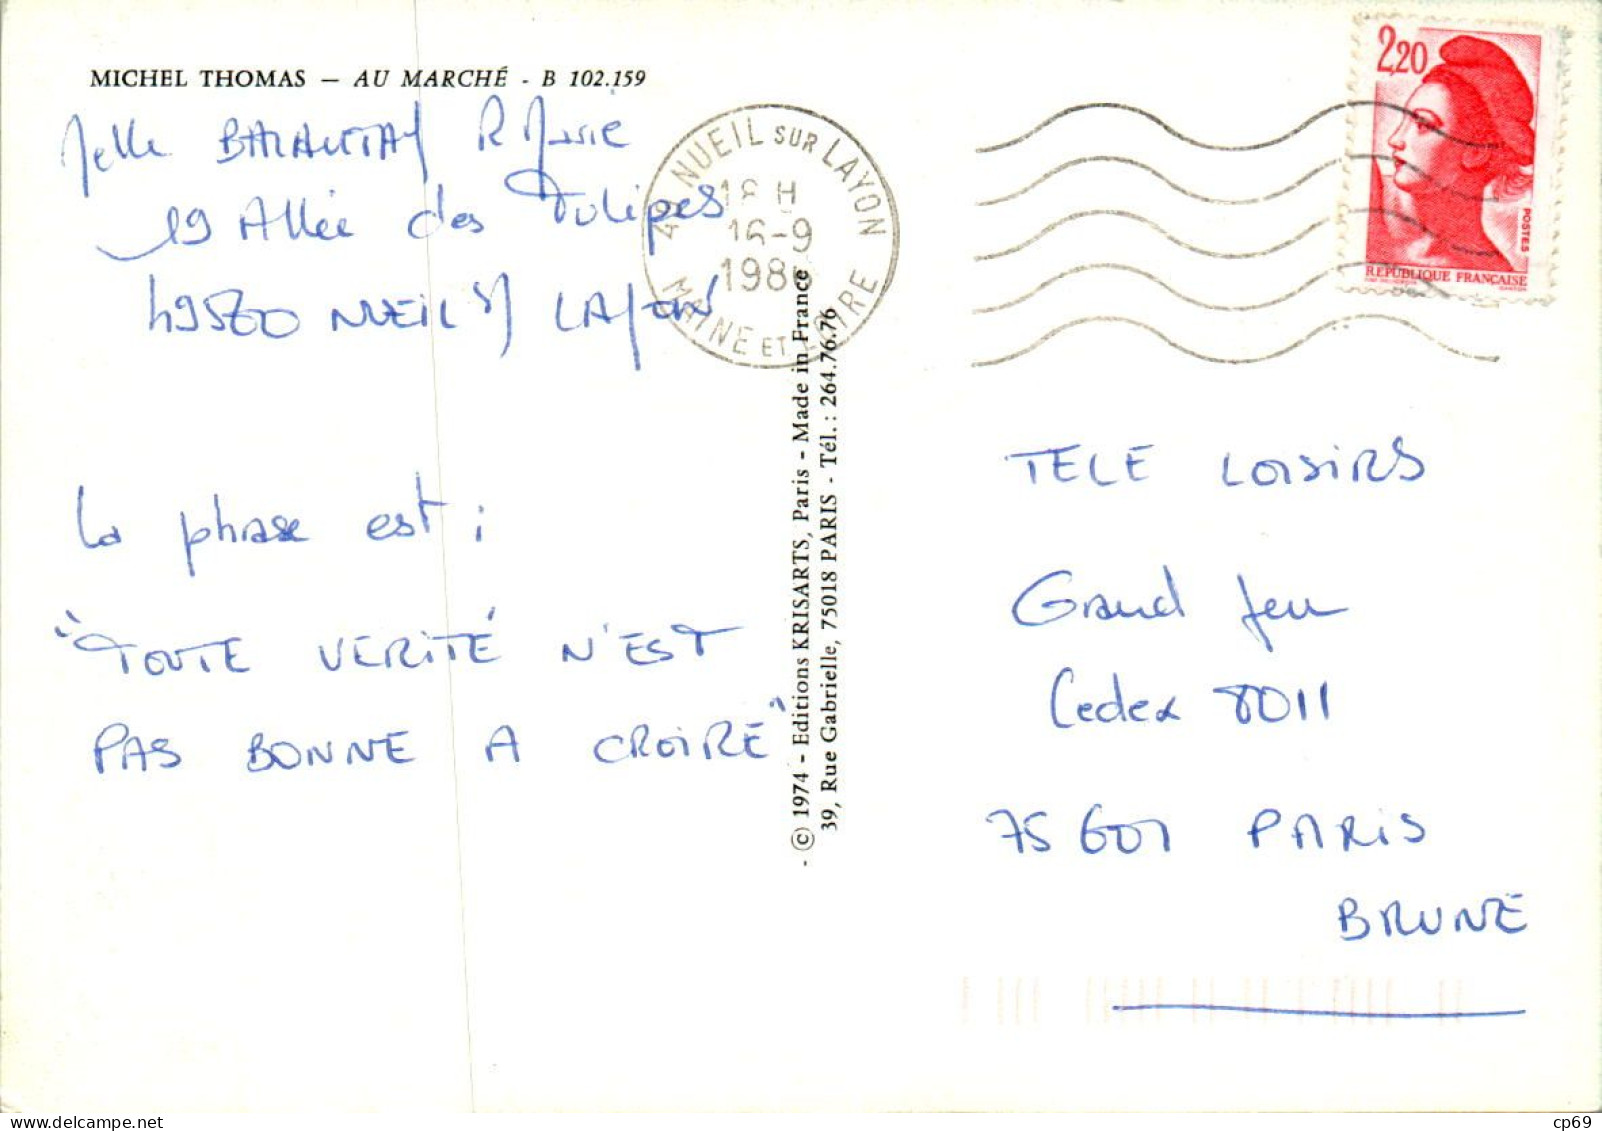 MICHEL THOMAS — AU MARCHÉ - B 102.159
Melle R Marie
19 Allée des Tulipes
49560 NUEIL S/ LAYON
La phrase est :
"TOUTE VERITÉ N'EST
PAS BONNE A CROIRE"
49 NUEIL SUR LAYON
18 H
16-9
198
MAINE ET LOIRE
- © 1974 - Editions KRISARTS, Paris - Made in France
39, Rue Gabrielle, 75018 PARIS - Tél. : 264.76.76
2,20
POSTES
REPUBLIQUE FRANÇAISE
TELE LOISIRS
Grand Jeu
Cedex 8011
75601 PARIS
BRUNE
cp69